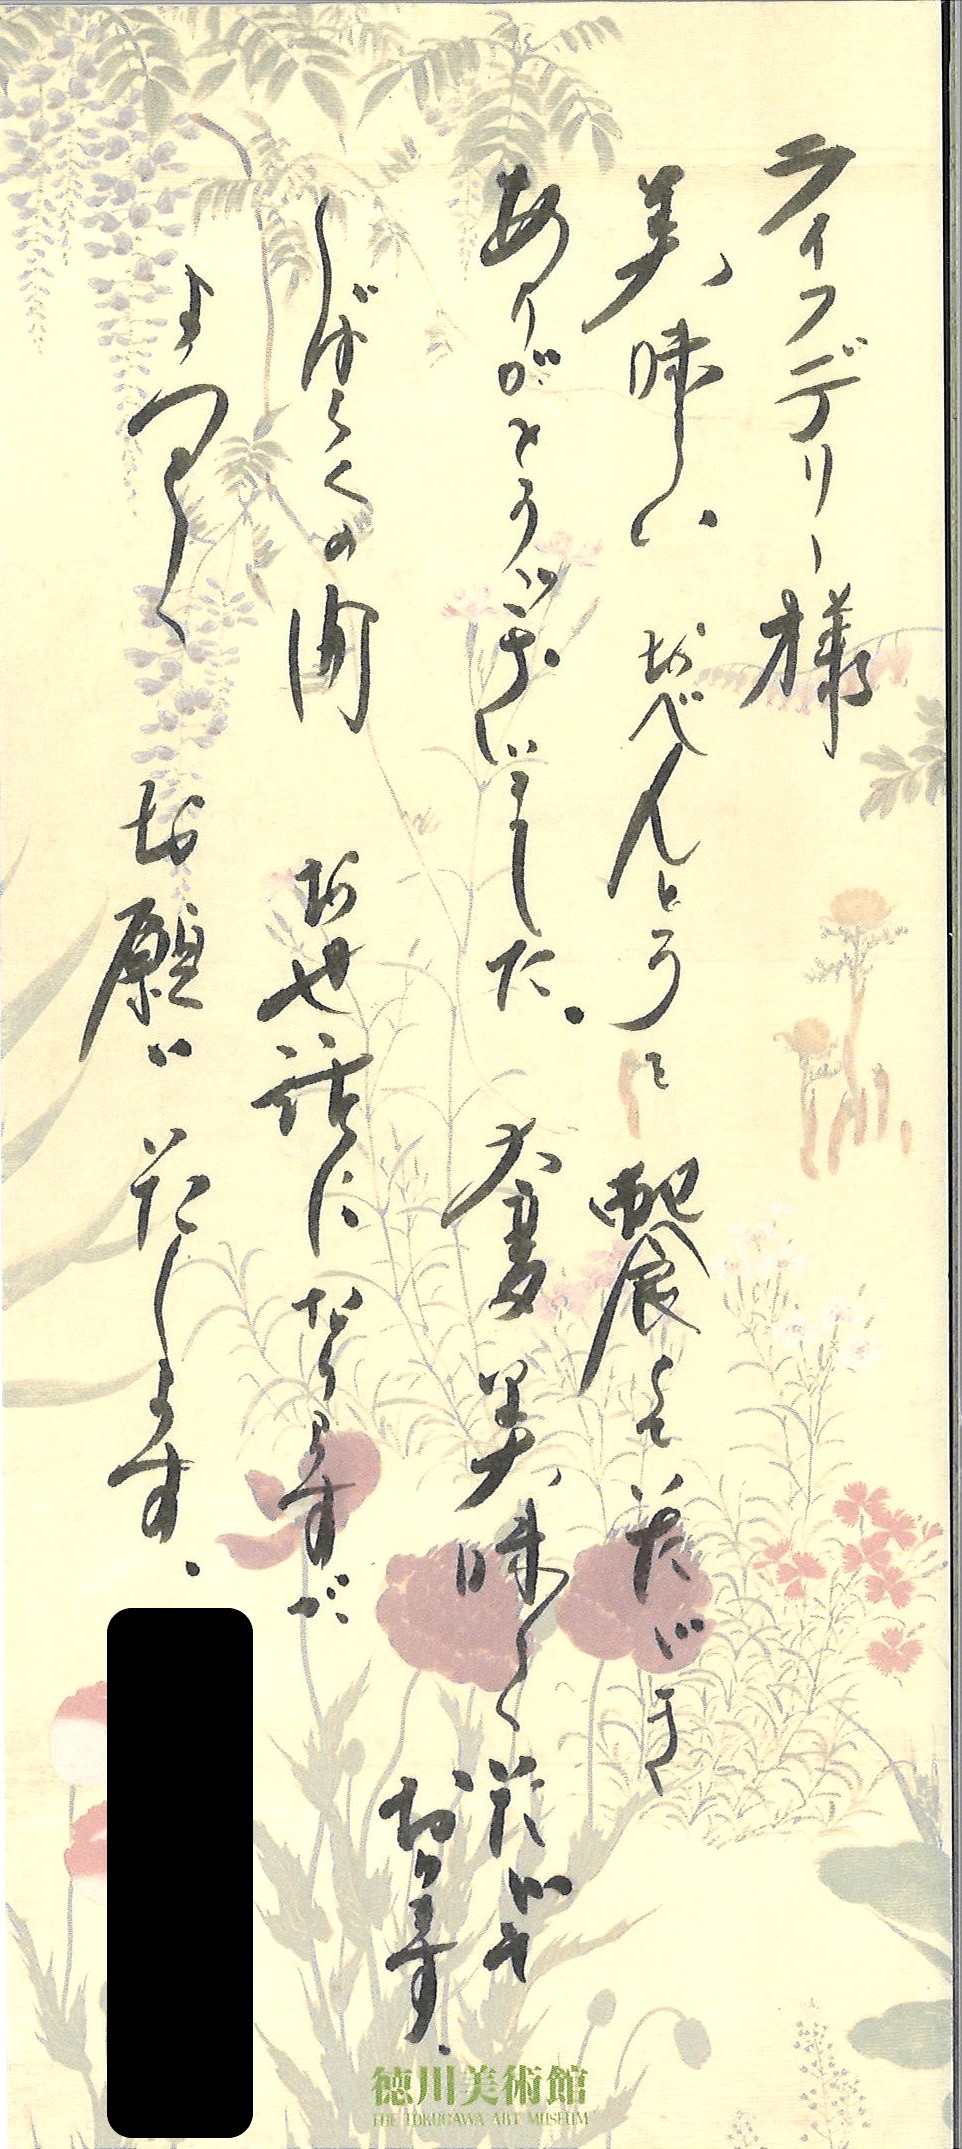 ライフデリー様
美味しい おべんとうを 配膳して いただき
ありがとうございました。 大変 美味しく いただいて
おります.
しばらくの間 お世話に なりますが
よろしく お願い いたします.
徳川美術館
THE TOKUGAWA ART MUSEUM